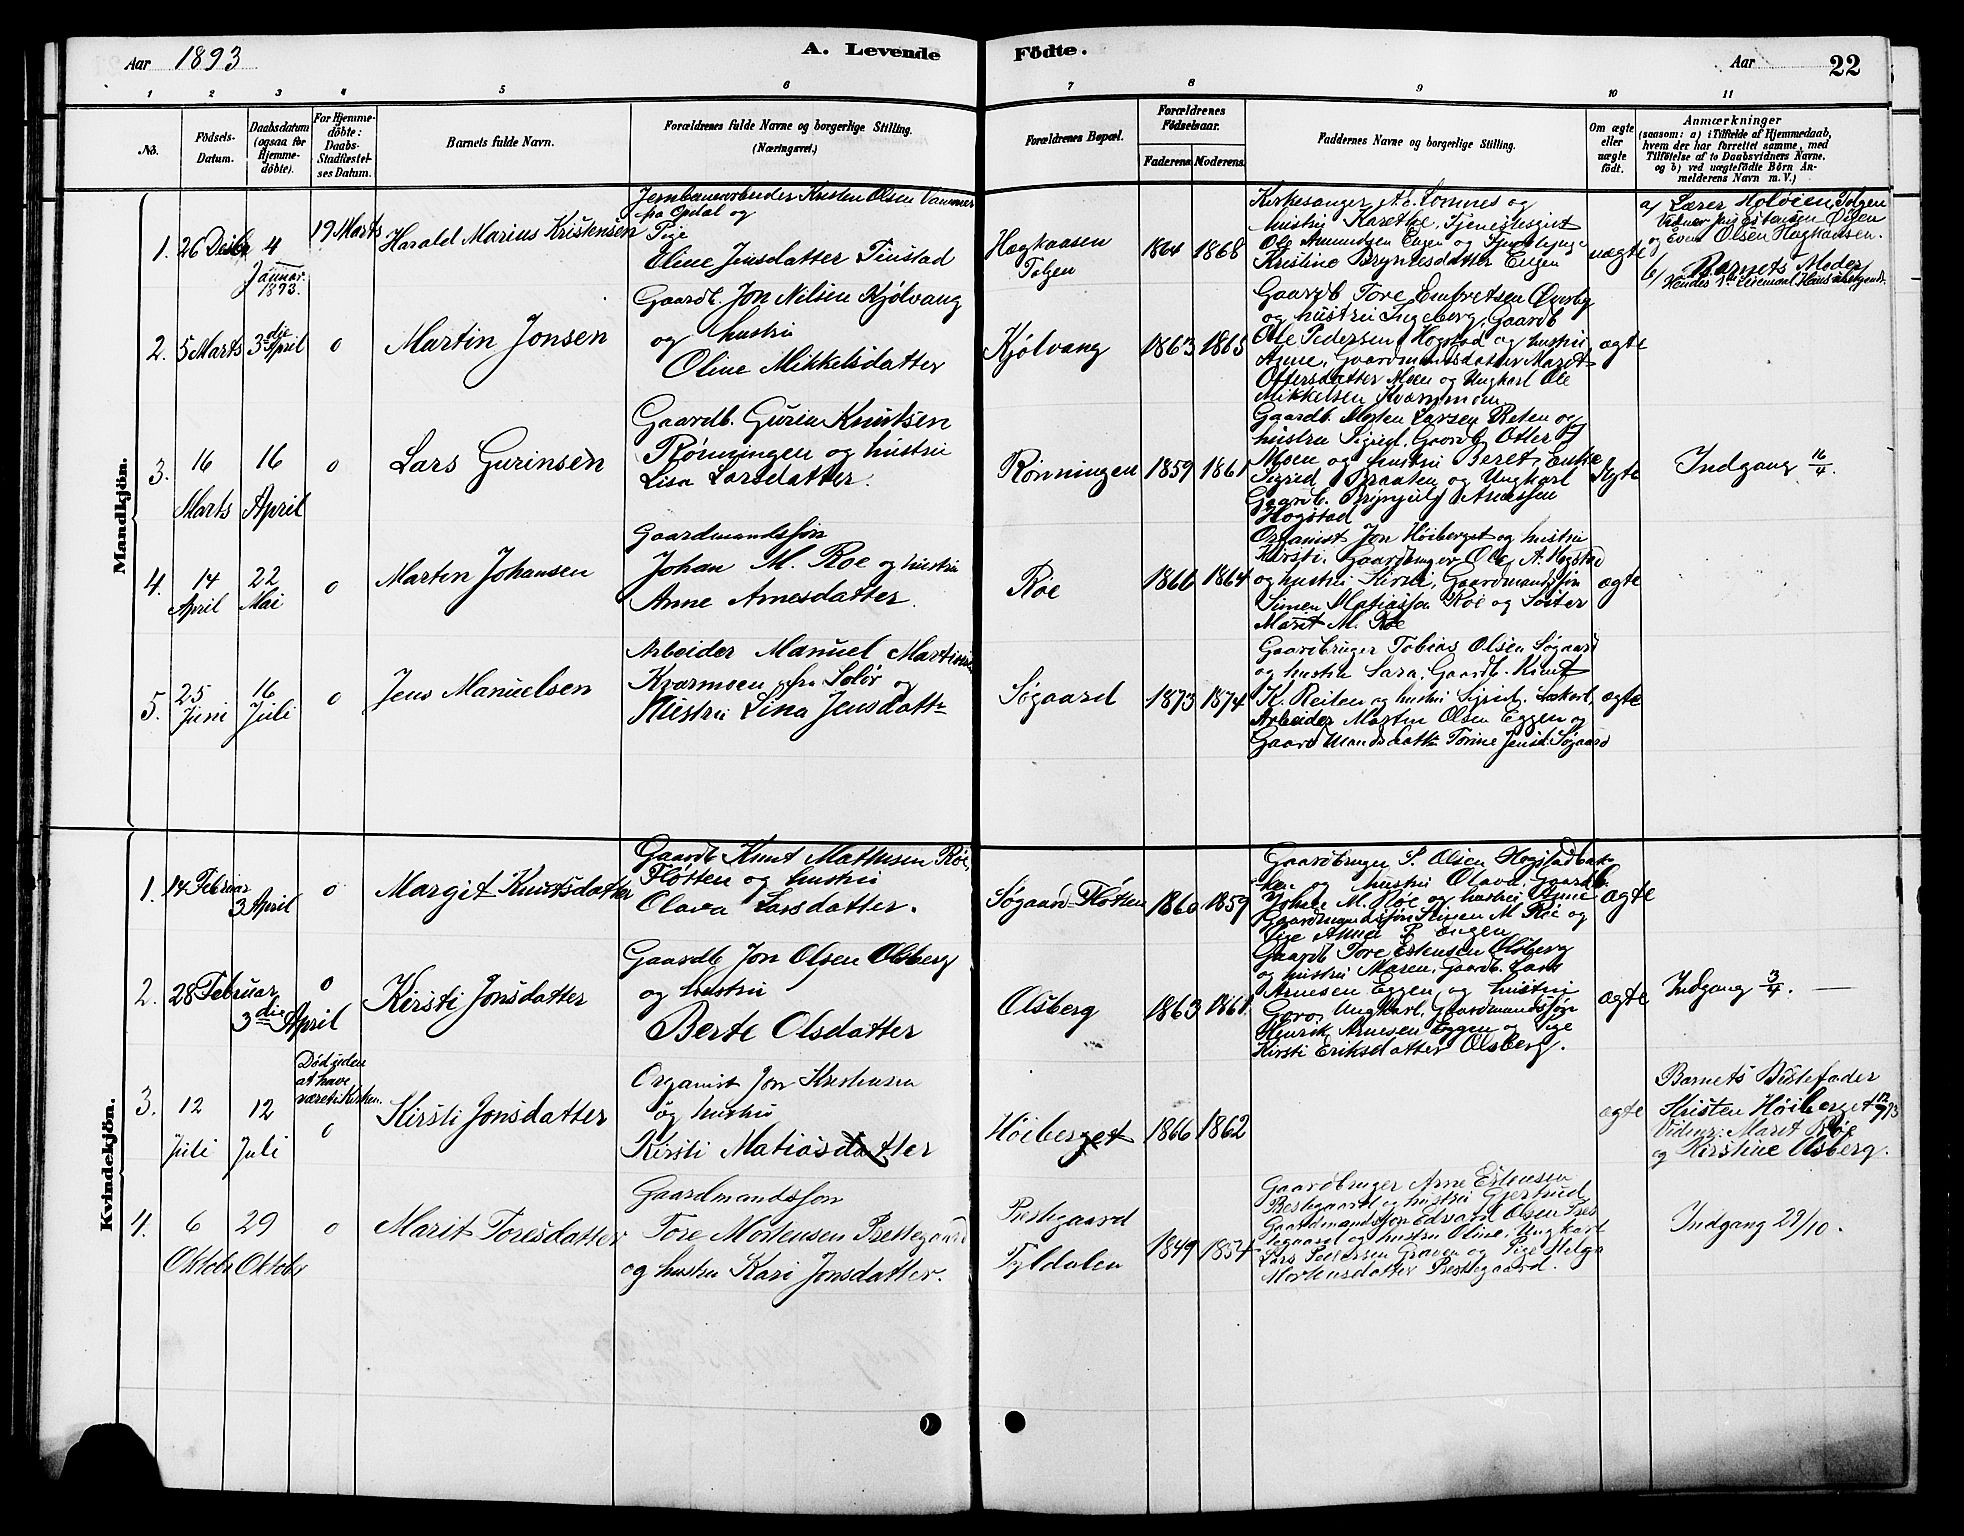 Aar 1893
A. Levende
Födte.
Aar
22
1 2 3 4 5 6 7 8 9 10 11
No.
Födsels-
Datum.
Daabsdatum
(ogsaa for
Hjemme-
döbte).
For Hjemme-
döbte:
Daabs-
Stadfæstel-
ses Datum.
Barnets fulde Navn.
Forældrenes fulde Navne og borgerlige Stilling.
(Næringsvei.)
Forældrenes Bopæl.
Forældrenes
Födselsaar.
Faderens. Moderens.
Faddernes Navne og borgerlige Stilling.
Om ægte
eller
uægte
födt.
Anmærkninger
(saasom: a) i Tilfælde af Hjemmedaab,
hvem der har forrettet samme, med
Tilföielse af to Daabsvidners Navne,
og b) ved uægtefödte Börn An-
melderens Navn m. V.)
Mandkjön.
1.
26 Decbr
4
Januar.
1893.
19 Marts
Harald Marius Kristensen
Jernbanearbeider Kristen Olsen
fra Opdal og
Pige
Eline Jensdatter
Hagkaasen
Tolgen
1864
1868
Kirkesanger Lomnes og
hustru
Ole Amundsen Engen og
Kristine Engen
uægte
a/ Lærer Holvien Tolgen
og Even Olsen Hagkaasen.
b/ Barnets Moder
2.
5 Marts
3die April
0
Martin Jonsen
Gaardb. Jon Nilsen Kjølvang
og hustru
Oline Mikkelsdatter
Kjølvang
1863
1865
Gaardb Tore Embretsen
og hustru Ingeborg, Gaardb
Ole Pedersen Hogstad og hustru
Anne, Gaardmandsdatter Marit
Ottersdatter Moen og Ungkarl Ole
Mikkelsen
ægte
3.
16
Marts
16
April
0
Lars Gurinsen
Gaardb. Gurin Knutsen
Rønningen og hustru
Lisa Larsdatter.
Rønningen
1859
1861
Gaardb. Morten Larsen og
hustru Sigrid, Gaardb Otter
Moen og hustru Beret, Enke
Sigrid Braaten og Ungkarl
Gaardb. Brynjulf Arnessen
Hogstad
Ægte
Indgang 16/4.
4.
14
April
22
Mai
0
Martin Johansen
Gaardmandssøn
Johan M. Roe og hustru
Anne Arnesdatter.
Roe
1866
1864
Organist Jon Høiberget og hustru
Kirsti, Gaardbruger Ole A. Hogstad
og hustru Gaardmandssøn
Simen Matiassen Roe og Søster
Marit M. Roe
ægte
5.
25
Juni
16
Juli
0
Jens Manuelsen
Arbeider Manuel
Kværmoen fra Solør og
Hustru Lina Jensdattr
Søgaard
1873
1874
Gaardbruger Tobias Olsen Søgaard
og hustru Sara, Gaardb. Knut
K. Reiten og hustru Sigrid,
Arbeider Morten Olsen Eggen og
Gaardmandsdattr Torine Jensd. Søgaard
ægte
Kvindekjön.
1.
14 Februar
3 April
0
Margit Knutsdatter
Gaardb Knut Mathisen Røe,
Fløtten og hustru
Olava Larsdatter.
Søgaard-Fløtten
1860
1859
Gaardbruger P. Olsen Hogstadbak-
ken og hustru Olava, Gaardb.
Johan M. Røe og hustru Anne
Gaardmandssøn Simen M. Røe og
Pige Anne P. Engen
ægte
2.
28 Februar
3die April
0
Kirsti Jonsdatter
Gaardb Jon Olsen Olsberg
og hustru
Berte Olsdatter
Olsberg
1863
1861
Gaardb Tore Estensen Olsberg
og hustru Maren, Gaardb. Lars
Arnesen Eggen og hustru
Goro, Ungkarl, Gaardmandssøn
Henrik Arnesen Eggen og Pige
Kirsti Eriksdatter Olsberg.
ægte
Indgang 3/4. —
3.
12
Juli
12
Juli
Død uden
at have
været i Kirken.
0
Kirsti Jonsdatter
Organist Jon Kristensen
og hustru
Kirsti Matiasdatter
Høiberget
1866
1862
ægte
Barnets Bestefader
Kristen Høiberget 12/7 93
Vidner: Marit Røe
og Kirstine Olsberg.
4.
6
Oktobr
29
Oktobr
0
Marit Toresdatter
Gaardmandssøn
Tore Mortensen Prestegaard
og hustru Kari Jonsdatter.
Prestegaard
Tyldalen
1849
1854
Gaardbruger Arne Estensen
Prestegaard og hustru Gjertrud
Gaardmandssøn Edvard Olsen Pres
tegaard og hustru Oline, Ungkarl
Lars Pedersen Graven og Pige Helga
Mortensdatter Prestegaard.
Indgang 29/10.